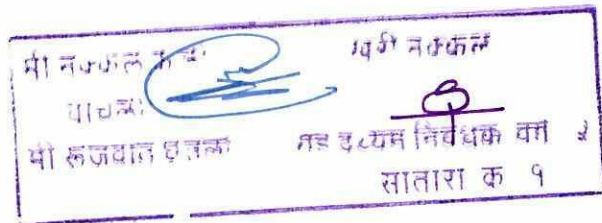 मी नक्कल केली खरी नक्कल
वाचली
मी रूजवात घेतली सह दुय्यम निबंधक वर्ग २
सातारा क १